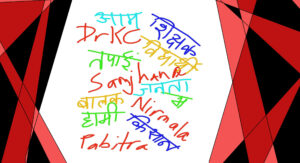 आम शिक्षक
DrKC विद्यार्थी
तपाईं
Sanjhana
जनता
बालक Nirmala म
हामी किसान
Pabitra